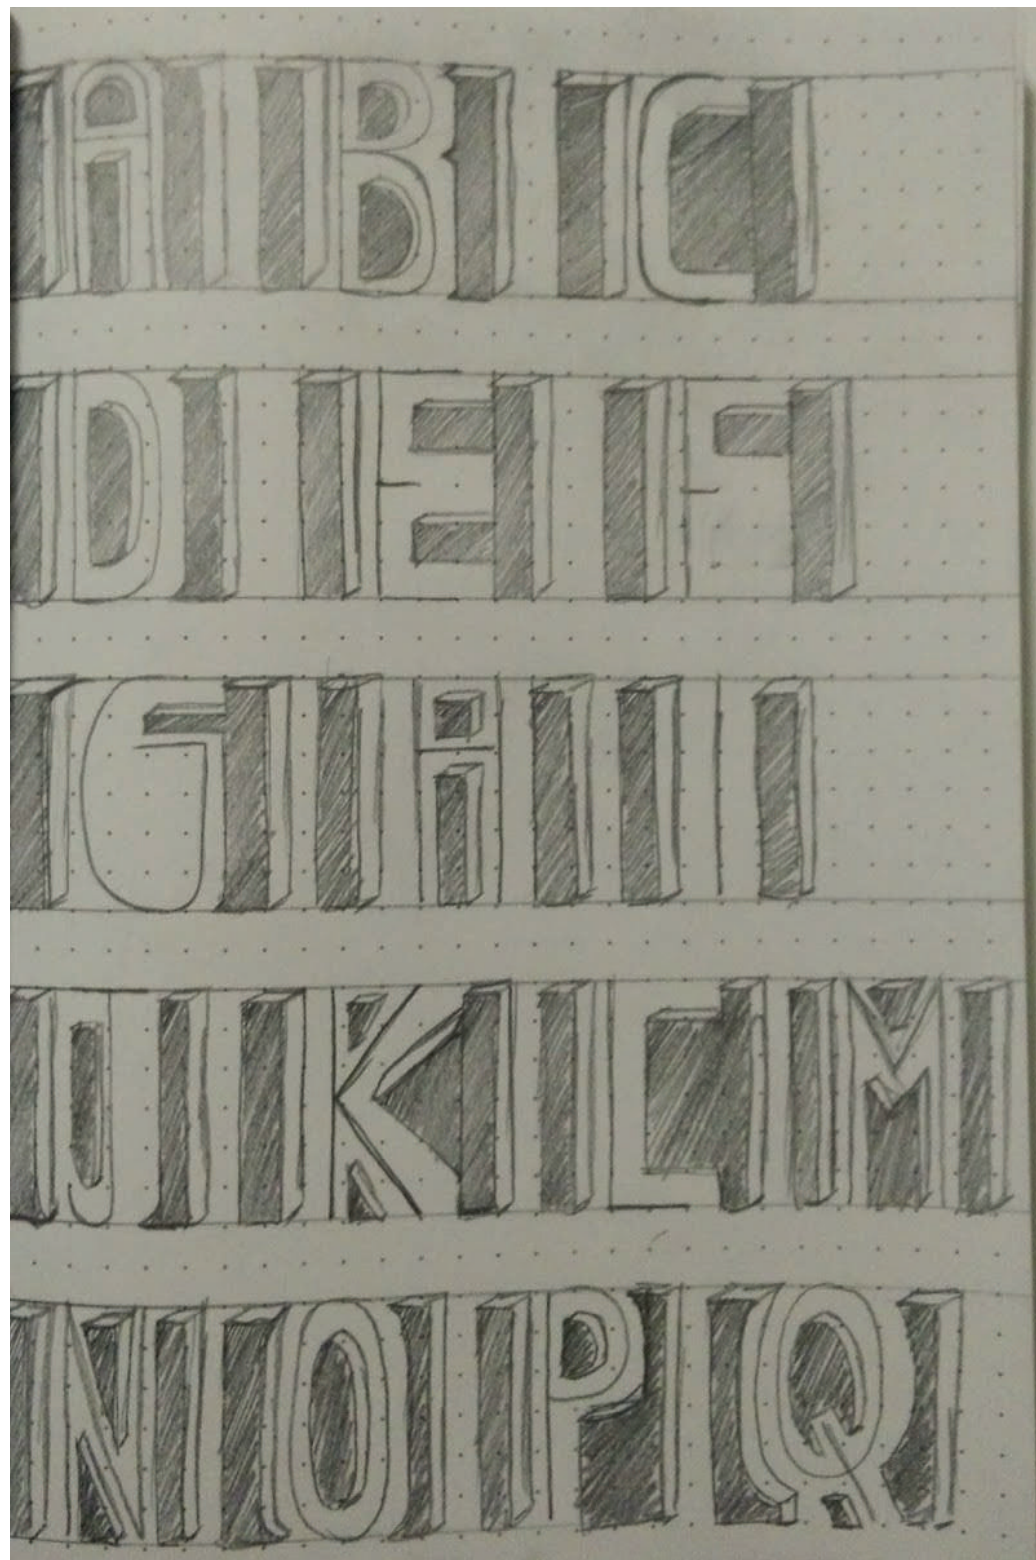 A B C
D E F
G H I
J K L M
N O P Q